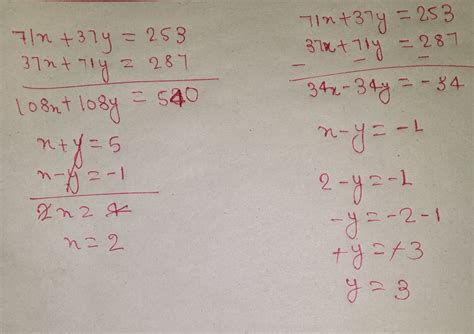 71x+37y = 253
37x+71y = 287
108x+108y = 540
x+y = 5
x-y = -1
2x = 4
x = 2
71x+37y = 253
37x+71y = 287
- - -
34x-34y = -34
x-y = -1
2-y = -1
-y = -2-1
+y = +3
y = 3